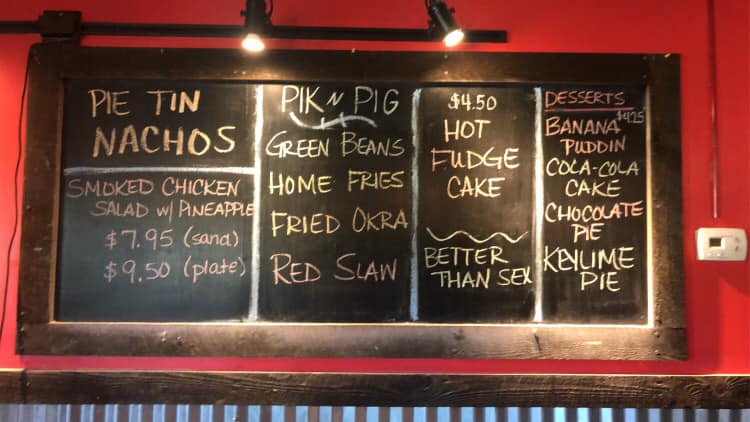 PIE TIN
NACHOS
SMOKED CHICKEN
SALAD W/ PINEAPPLE
$7.95 (sand)
$9.50 (plate)
PIK N PIG
GREEN BEANS
HOME FRIES
FRIED OKRA
RED SLAW
$4.50
HOT
FUDGE
CAKE
BETTER
THAN SEX
DESSERTS
$4.25
BANANA
PUDDIN
COLA-COLA
CAKE
CHOCOLATE
PIE
KEYLIME
PIE